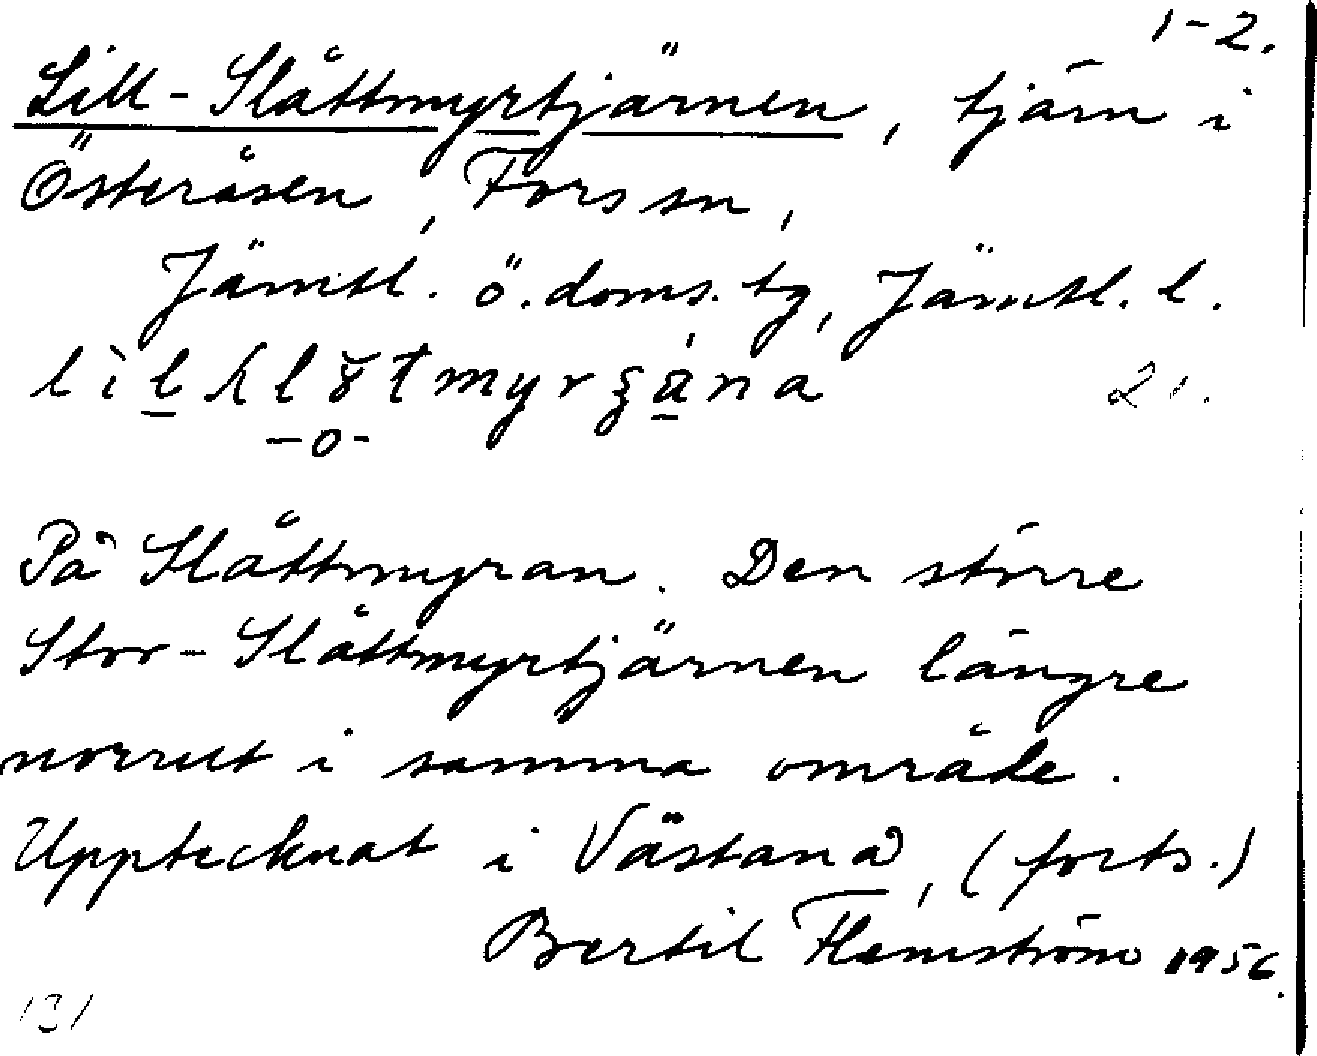 1-2.
Lill-Slåttmyrtjärnen, tjärn i
Österåsen, Fors sn,
Jämtl. ö. doms. tg, Jämtl. l.
21.
-o-
På Slåttmyran. Den större
Stor-Slåttmyrtjärnen längre
norrut i samma område.
Upptecknat i Västanå, (forts.)
Bertil Flemström 1956.
131